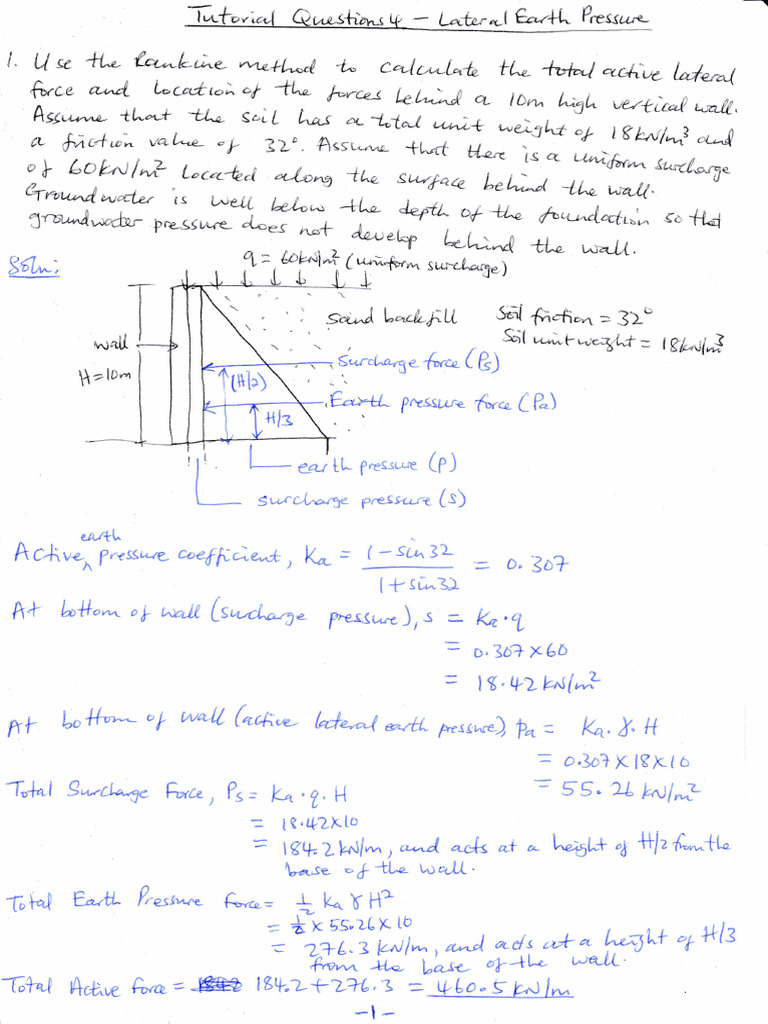 Tutorial Questions 4 – Lateral Earth Pressure
1. Use the Rankine method to calculate the total active lateral
force and location of the forces behind a 10m high vertical wall.
Assume that the soil has a total unit weight of 18kN/m³ and
a friction value of 32°. Assume that there is a uniform surcharge
of 60kN/m² located along the surface behind the wall.
Groundwater is well below the depth of the foundation so that
groundwater pressure does not develop behind the wall.
Soln:
q = 60kN/m² (uniform surcharge)
Sand backfill
Soil friction = 32°
Soil unit weight = 18kN/m³
wall
H = 10m
Surcharge force (Ps)
(H/2)
Earth pressure force (Pa)
H/3
earth pressure (p)
surcharge pressure (s)
earth
Active ^ pressure coefficient, Ka = (1 – sin32)/(1 + sin32) = 0.307
At bottom of wall (surcharge pressure), s = Ka·q
= 0.307 × 60
= 18.42 kN/m²
At bottom of wall (active lateral earth pressure) Pa = Ka.γ.H
= 0.307 × 18 × 10
= 55.26 kN/m²
Total Surcharge Force, Ps = Ka·q.H
= 18.42×10
= 184.2 kN/m, and acts at a height of H/2 from the
base of the wall.
Total Earth Pressure Force = ½ Ka γ H²
= ½ × 55.26 × 10
= 276.3 kN/m, and acts at a height of H/3
from the base of the wall.
Total Active force = 184.2 + 276.3 = 460.5 kN/m
-1-